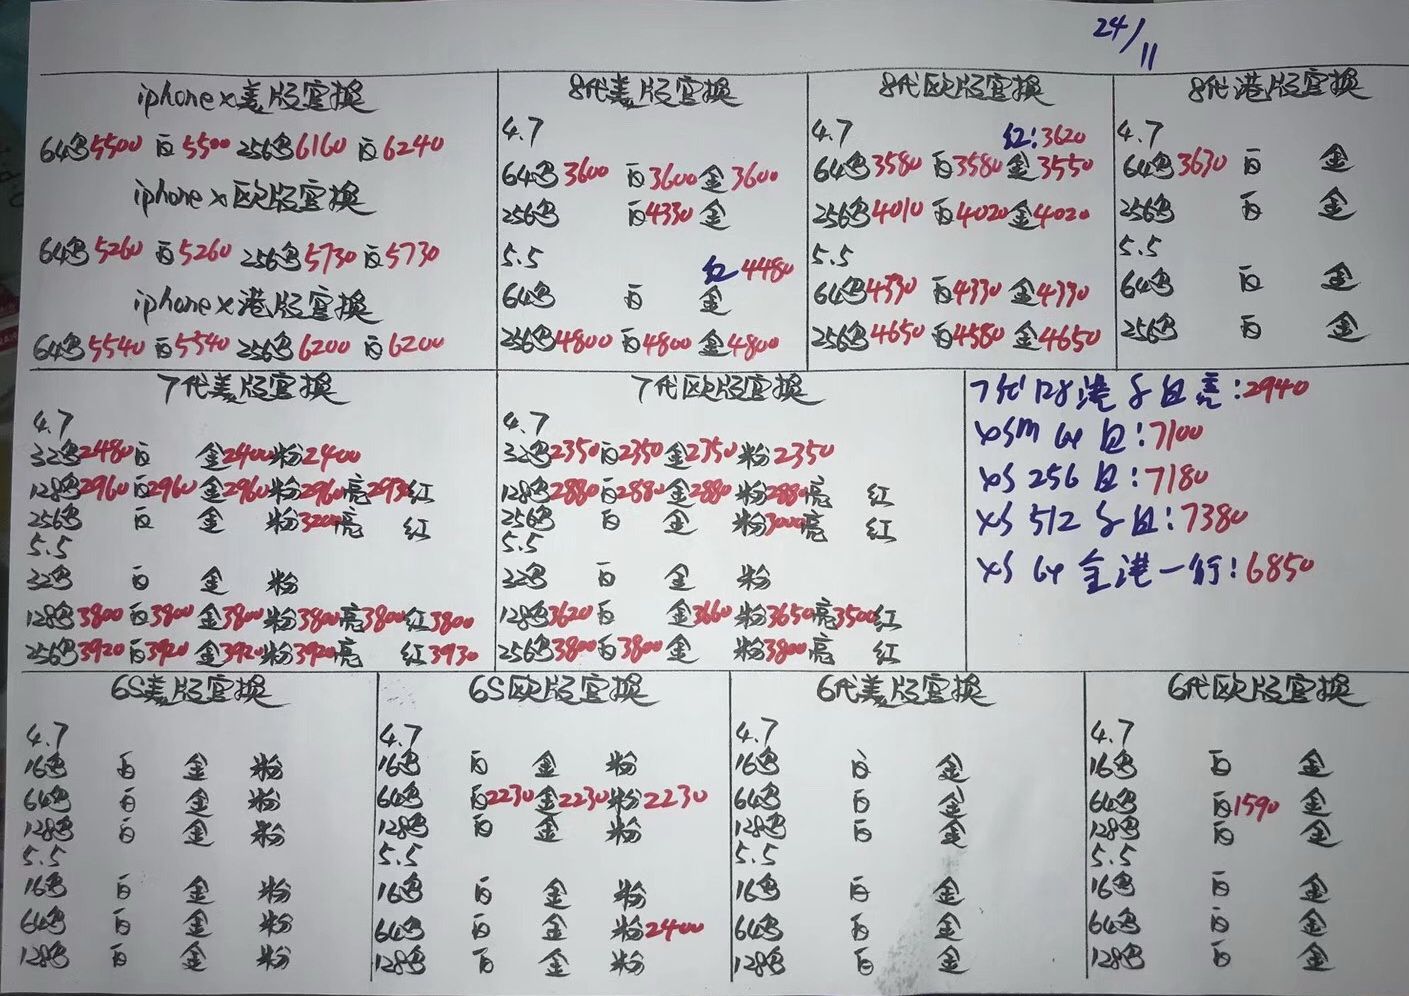 24/11
iphone x美版官换
64黑5500 白5500 256黑6160 白6240
iphone x欧版官换
64黑5260 白5260 256黑5730 白5730
iphone x港版官换
64黑5540 白5540 256黑6200 白6200
8代美版官换
4.7
64黑3600 白3600 金3600
256黑 白4330 金
5.5
红4480
64黑 白 金
256黑4800 白4800 金4800
8代欧版官换
4.7 红:3620
64黑3580 白3580 金3550
256黑4010 白4020 金4020
5.5
64黑4330 白4330 金4330
256黑4650 白4580 金4650
8代港版官换
4.7
64黑3630 白 金
256黑 白 金
5.5
64黑 白 金
256黑 白 金
7代美版官换
4.7
32黑2480白 金2400粉2400
128黑2960白2960金2960粉2960亮2930红
256黑 白 金 粉3200亮 红
5.5
32黑 白 金 粉
128黑3800白3800金3800粉3800亮3800红3800
256黑3920白3920金3920粉3920亮 红3930
7代欧版官换
4.7
32黑2350白2350金2350粉2350
128黑2880白2880金2880粉2880亮 红
256黑 白 金 粉3000亮 红
5.5
32黑 白 金 粉
128黑3620白 金3660粉3650亮3500红
256黑3800白3800金 粉3800亮 红
7代128港 :2940
XSM 64 :7100
XS 256 :7180
XS 512 :7380
XS 64 金港一行:6850
6S美版官换
4.7
16黑 白 金 粉
64黑 白 金 粉
128黑 白 金 粉
5.5
16黑 白 金 粉
64黑 白 金 粉
128黑 白 金 粉
6S欧版官换
4.7
16黑 白 金 粉
64黑 白2230金2230粉2230
128黑 白 金 粉
5.5
16黑 白 金 粉
64黑 白 金 粉2400
128黑 白 金 粉
6代美版官换
4.7
16黑 白 金
64黑 白 金
128黑 白 金
5.5
16黑 白 金
64黑 白 金
128黑 白 金
6代欧版官换
4.7
16黑 白 金
64黑 白1590金
128黑 白 金
5.5
16黑 白 金
64黑 白 金
128黑 白 金